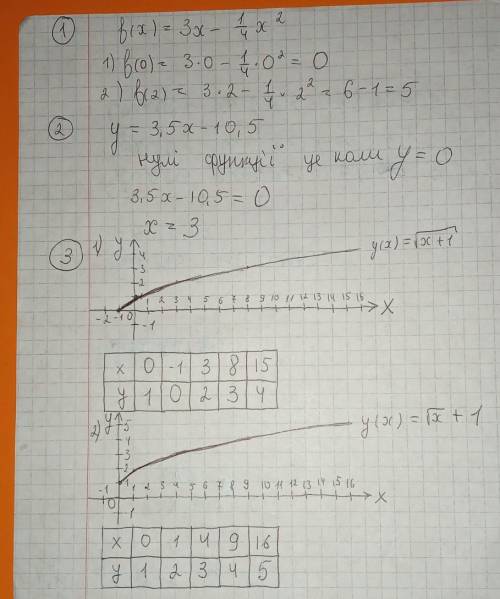 ① f(x) = 3x - 1/4 x²
1) f(0) = 3·0 - 1/4·0² = 0
2) f(2) = 3·2 - 1/4·2² = 6-1 = 5
② y = 3,5x-10,5
нулі функції це коли y = 0
3,5x-10,5 = 0
x = 3
③ 1) y
4
3
2
1
y(x) = √x+1
-2 -1 0 1 2 3 4 5 6 7 8 9 10 11 12 13 14 15 16 x
-1
x 0 -1 3 8 15
y 1 0 2 3 4
2) y
5
4
3
2
1
y(x) = √x + 1
-1 0 1 2 3 4 5 6 7 8 9 10 11 12 13 14 15 16 x
1
x 0 1 4 9 16
y 1 2 3 4 5